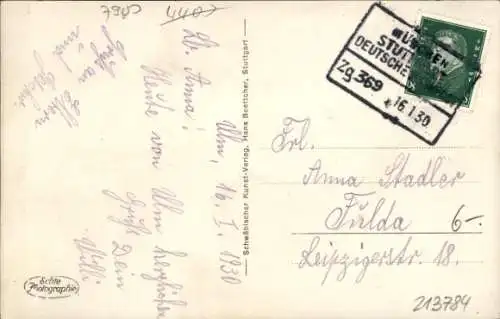 7903
4407
Ulm, 16. I. 1930
Lb. Anna!
Heute von Ulm herzliche
Grüße Dein
Willi
Gruß an
Eltern
und
Schwäbischer Kunst-Verlag, Hans Boettcher, Stuttgart
Echte
Photographie
MÜNCHEN
STUTT
DEUTSCHE
Zg. 369
16.1.30
8
Frl.
Anna Stadler
Fulda
6-
Leipzigerstr. 18.
213784